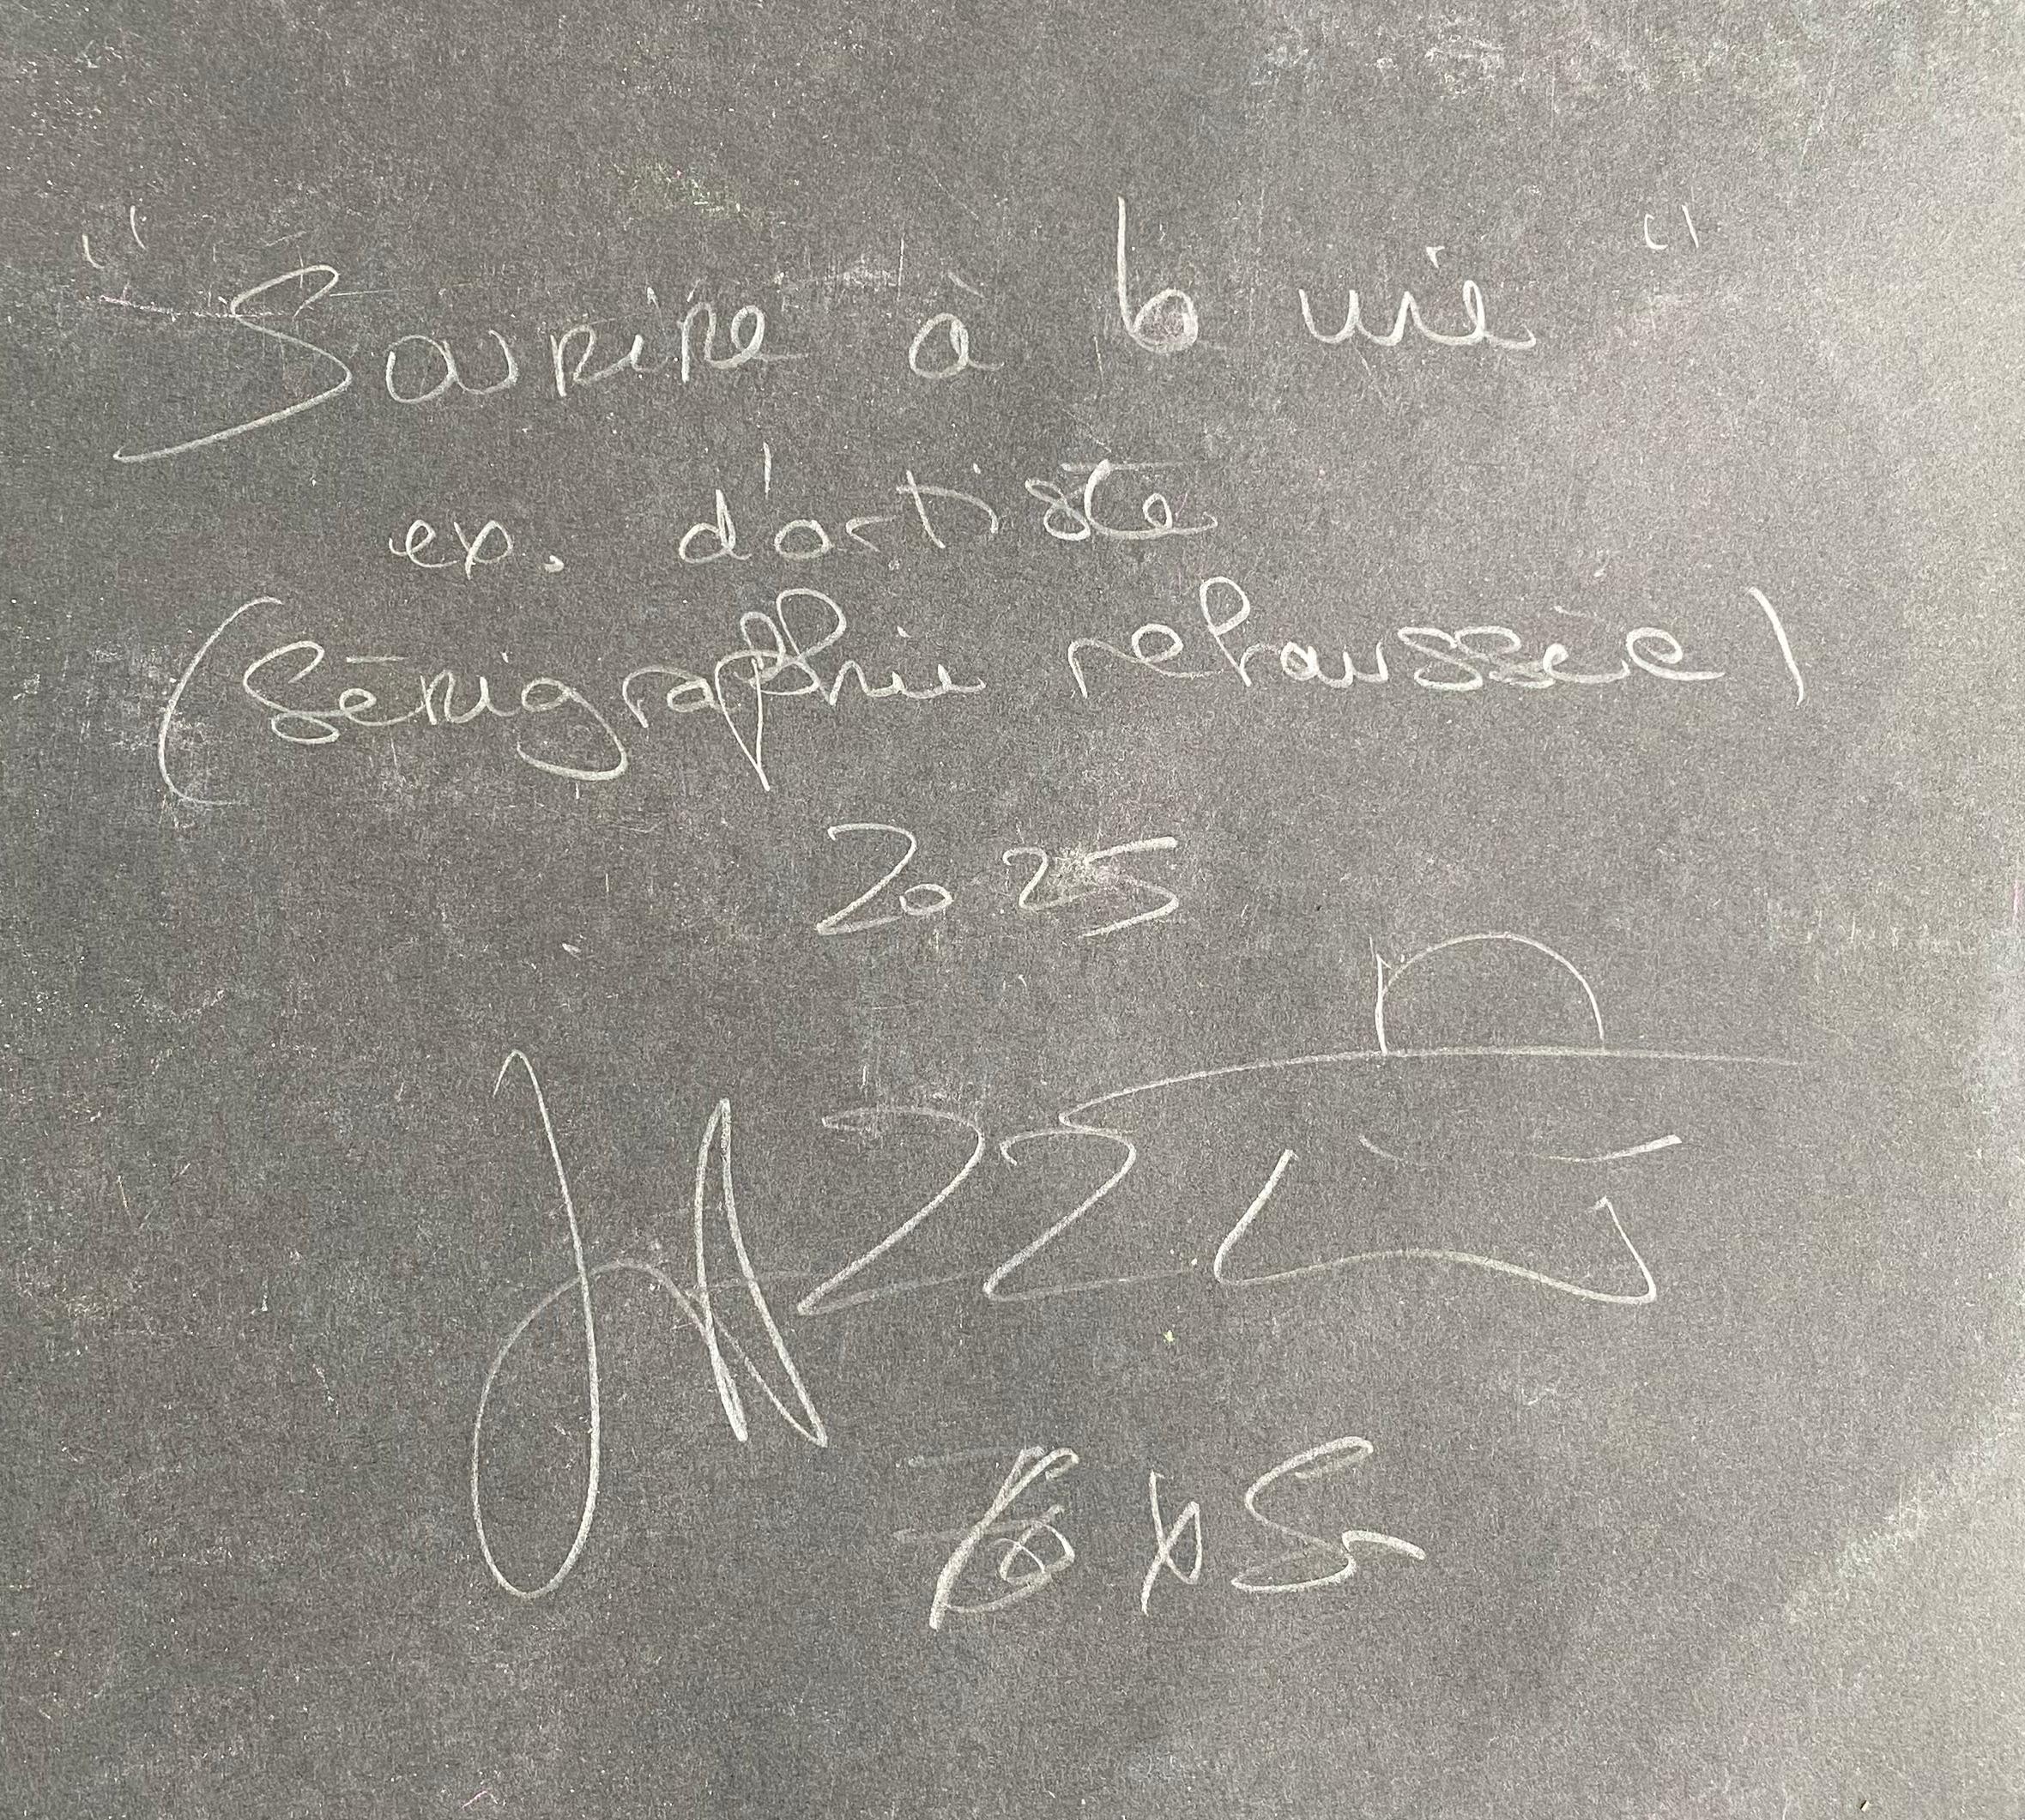 "Sourire à la vie"
ex. d'artiste
(Sérigraphie rehaussée)
2025